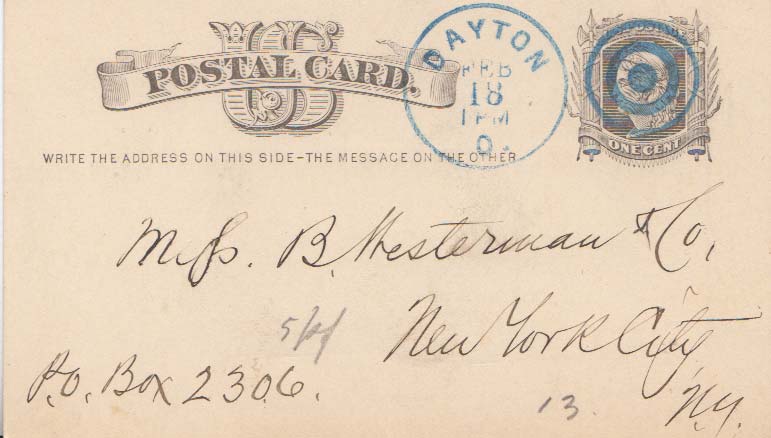 U S
POSTAL CARD.
WRITE THE ADDRESS ON THIS SIDE-THE MESSAGE ON THE OTHER
DAYTON
FEB
18
1 PM
O.
ONE CENT
Messs. B. Westerman & Co,
New York City
N.Y.
P.O. Box 2306.
13.